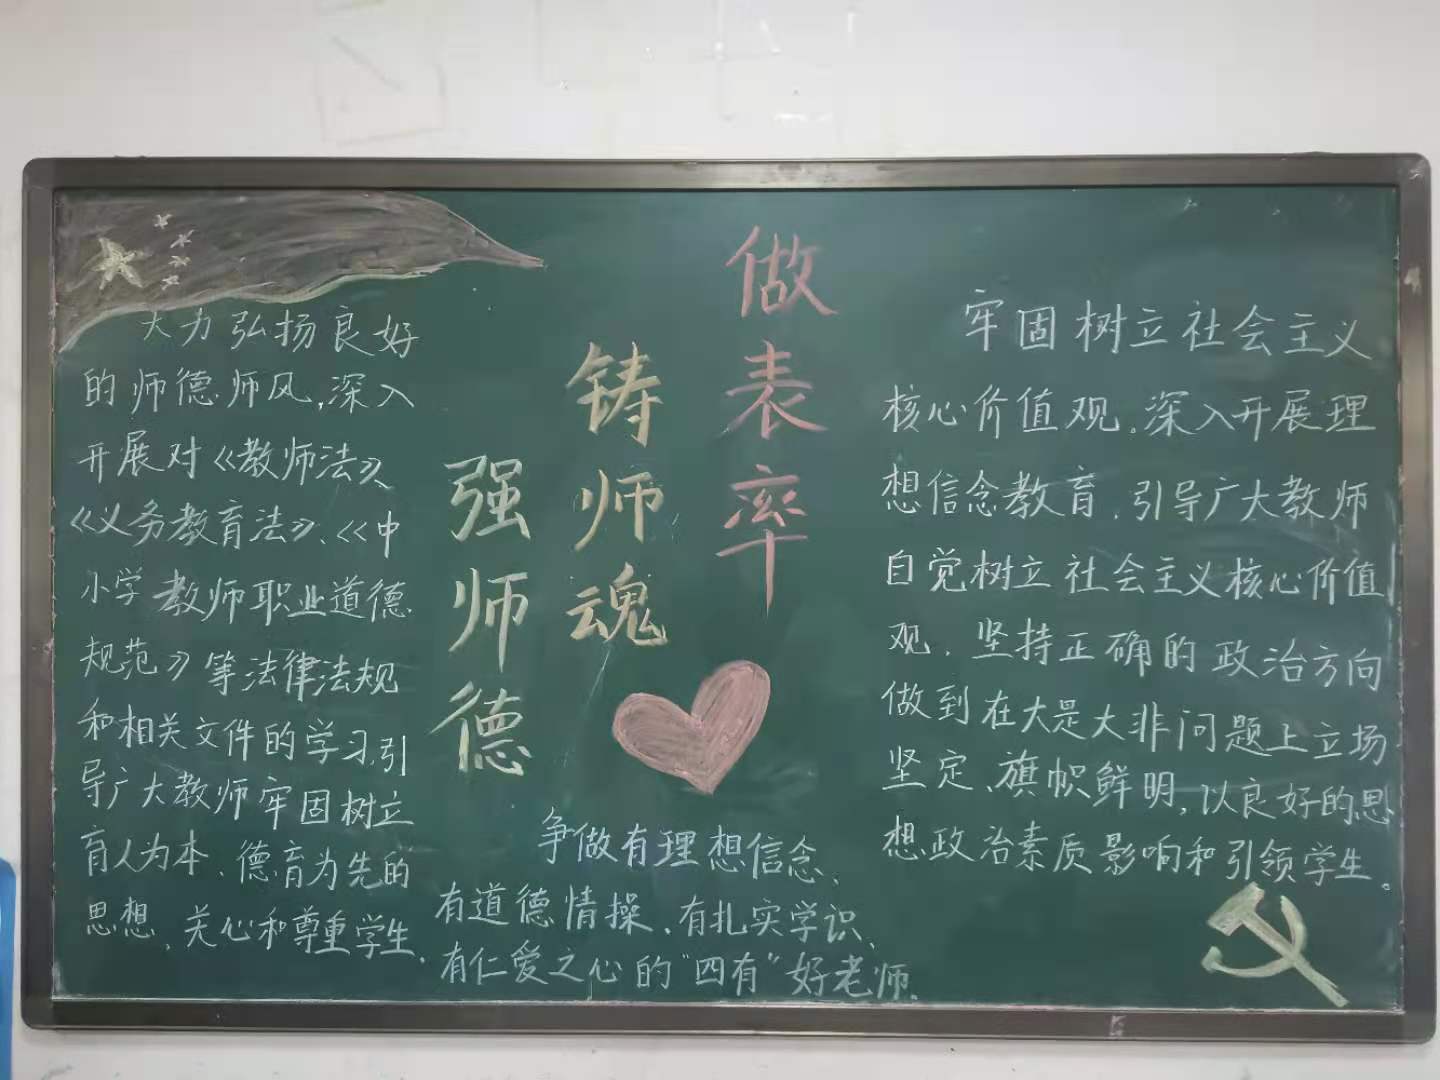 大力弘扬良好
的师德师风,深入
开展对《教师法》、
《义务教育法》、《中
小学教师职业道德
规范》等法律法规
和相关文件的学习,引
导广大教师牢固树立
育人为本、德育为先的
思想,关心和尊重学生.
强师德
铸师魂
做表率
争做有理想信念、
有道德情操、有扎实学识、
有仁爱之心的"四有"好老师。
牢固树立社会主义
核心价值观。深入开展理
想信念教育,引导广大教师
自觉树立社会主义核心价值
观,坚持正确的政治方向
做到在大是大非问题上立场
坚定、旗帜鲜明,以良好的思
想政治素质影响和引领学生。